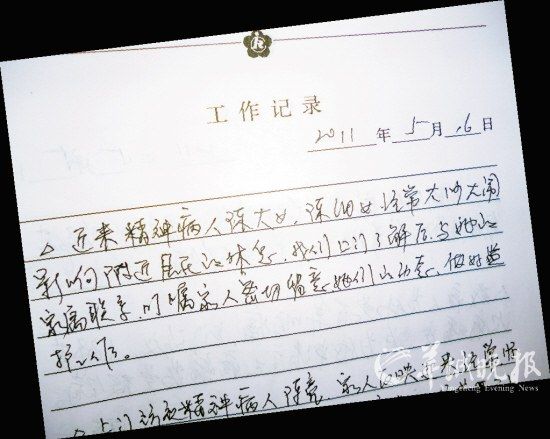 工作记录
2011 年 5 月 16 日
△近来精神病人陈大女、陈细女经常大吵大闹
影响附近居民的休息,我们上门了解后,与她的
家属联系,叮嘱家人密切留意她们的动态,做好监
护工作。
上门访视精神病人陈 家人反映其经常
羊城晚报
Yangcheng Evening News